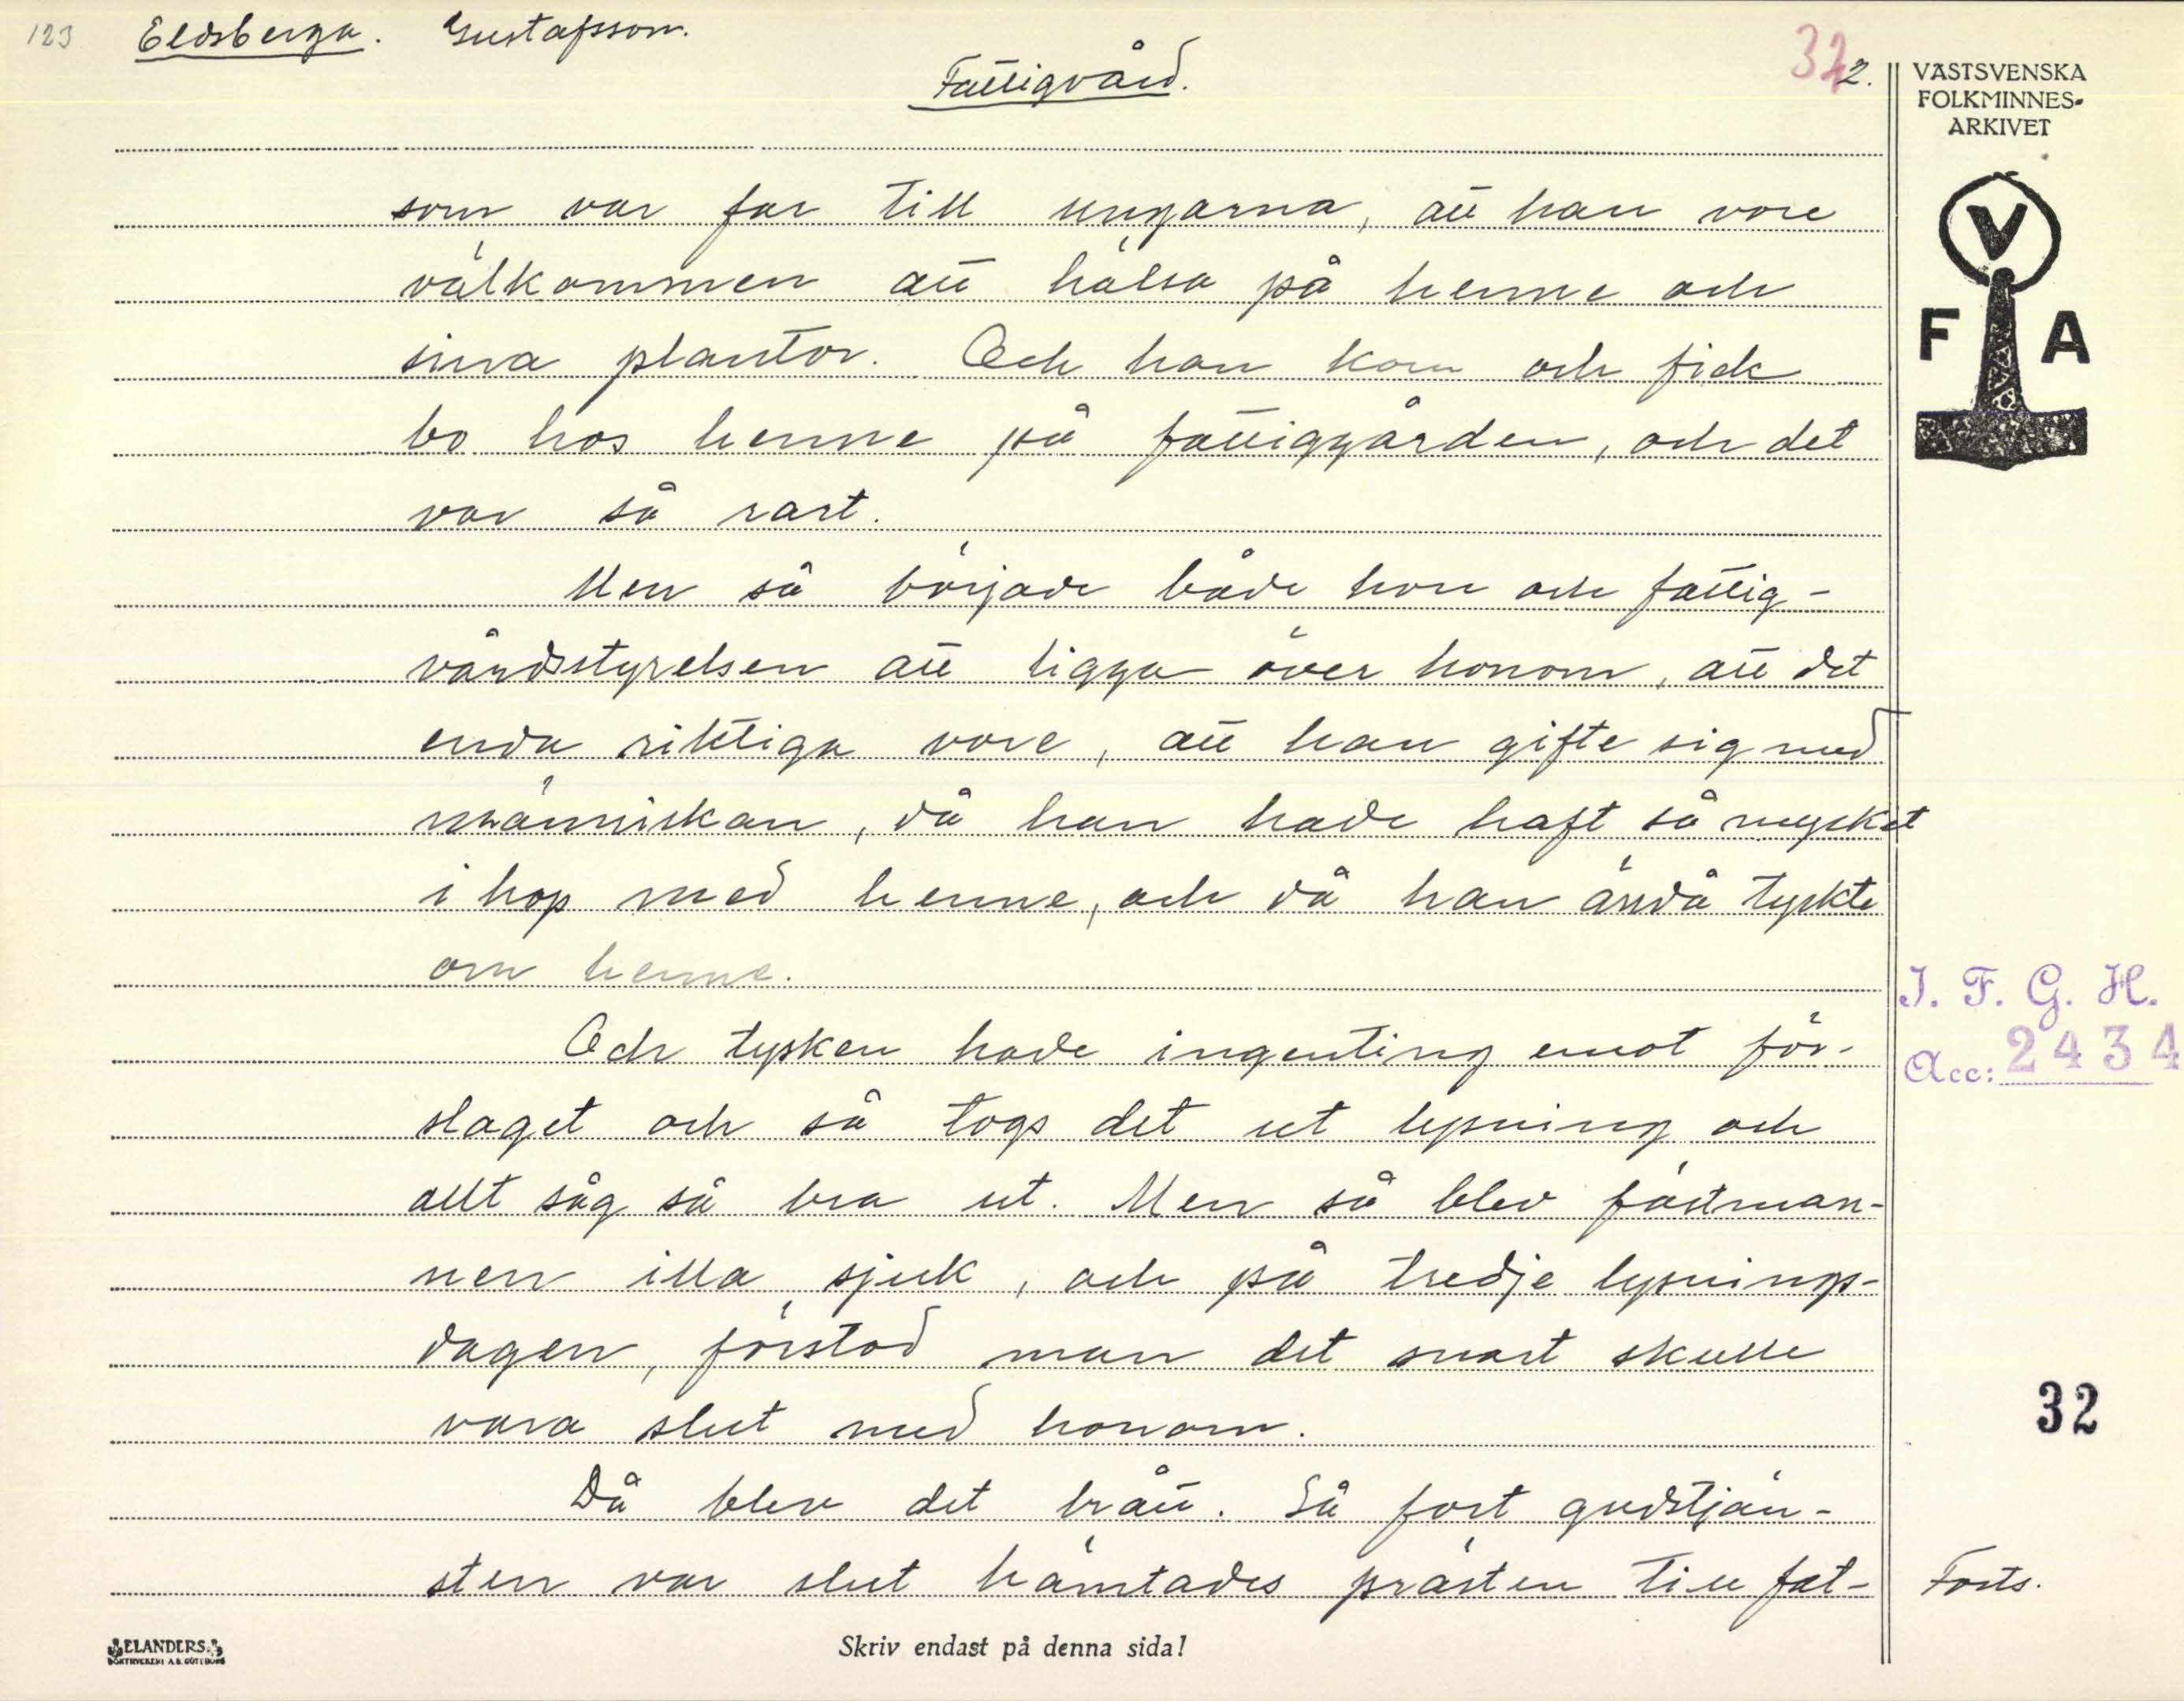 123 Eldsberga. Gustafsson.
Fattigvård.
32 2.
VÄSTSVENSKA
FOLKMINNES-
ARKIVET
V
F A
som var far till ungarna, att han vore
välkommen att hälsa på henne och
sina plantor. Och han kom och fick
bo hos henne på fattiggården, och det
var så rart.
Men så började både hon och fattig-
vårdsstyrelsen att ligga över honom, att det
enda riktiga vore, att han gifte sig med
människan, då han hade haft så mycket
i hop med henne, och då han ändå tyckte
om henne.
Och tysken hade ingenting emot för-
slaget och så togs det ut lysning och
allt såg så bra ut. Men så blev fästman-
nen illa sjuk, och på tredje lysnings-
dagen, förstod man det snart skulle
vara slut med honom.
Då blev det brått. Så fort gudstjän-
sten var slut hämtades prästen till fat-
I. F. G. H.
Acc: 2434
32
Forts.
ELANDERS
BOKTRYCKERI A.B. GÖTEBORG
Skriv endast på denna sida!